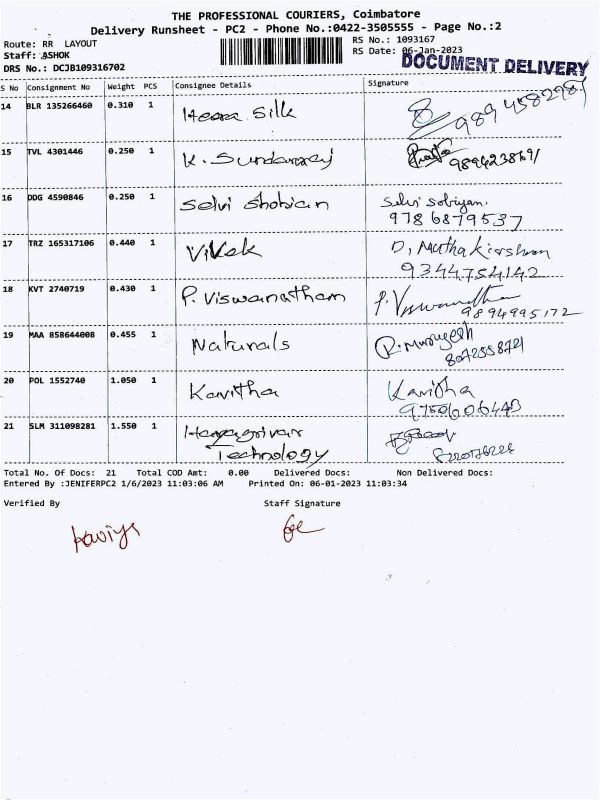 THE PROFESSIONAL COURIERS, Coimbatore
Delivery Runsheet - PC2 - Phone No.:0422-3505555 - Page No.:2
Route: RR LAYOUT
RS No.: 1093167
Staff: ASHOK
RS Date: 06-Jan-2023
DOCUMENT DELIVERY
DRS No.: DCJB109316702
S No Consignment No Weight PCS Consignee Details Signature
14 BLR 135266460 0.310 1 Heera Silk
9894582987
15 TVL 4301446 0.250 1 K. Sundarraj
16 DDG 4590846 0.250 1 Selvi Shobian Selvi Sobiyan.
9786879537
17 TRZ 165317106 0.440 1 Vivek D, Muthakirshnan
9344754142
18 KVT 2740719 0.430 1 P. Viswanatham P. Viswanatha
9894995172
19 MAA 858644008 0.455 1 Naturals R. Murugesh
8072558721
20 POL 1552740 1.050 1 Kavitha Kavitha
9750606443
21 SLM 311098281 1.550 1 Hayagrivar
Technology
Total No. Of Docs: 21 Total COD Amt: 0.00 Delivered Docs: Non Delivered Docs:
Entered By :JENIFERPC2 1/6/2023 11:03:06 AM Printed On: 06-01-2023 11:03:34
Verified By Staff Signature
Kaviya